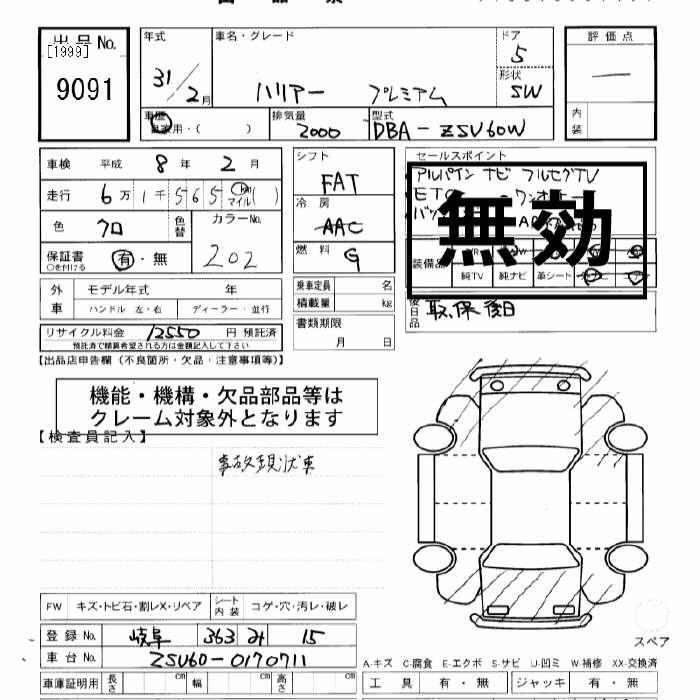 出品No.
[1999]
9091
年式
31/2月
車名・グレード
ハリアー プレミアム
ドア
5
形状
SW
評価点
―
内装
車歴
自家用・( )
排気量
2000
型式
DBA-ZSU60W
車検 平成 8年 2月
走行 6万1千565 km マイル( )
色 クロ
色替
カラーNo.
202
保証書
○を付ける
有・無
シフト
FAT
冷房
AAC
燃料
G
セールスポイント
アルパインナビ フルセグTV
ETC ワンオーナー
無効
装備品
純TV 純ナビ 革シート
外車
モデル年式 年
ハンドル 左・右 ディーラー・並行
乗車定員 名
積載量 kg
書類期限
月 日
後日品
取、保後日
リサイクル料金 12550 円 預託済
預託済で精算希望される方は金額記入して下さい
【出品店申告欄(不良箇所・欠品・注意事項等)】
機能・機構・欠品部品等は
クレーム対象外となります
【検査員記入】
事故現状車
FW キズ・トビ石・割レX・リペア
シート内装 コゲ・穴・汚レ・破レ
登録No. 岐阜 363 み 15
車台No. ZSU60-0170711
車庫証明用 長さ cm 幅 cm 高さ cm
スペア
A-キズ C-腐食 E-エクボ S-サビ U-凹ミ W-補修 XX-交換済
工具 有・無 ジャッキ 有・無